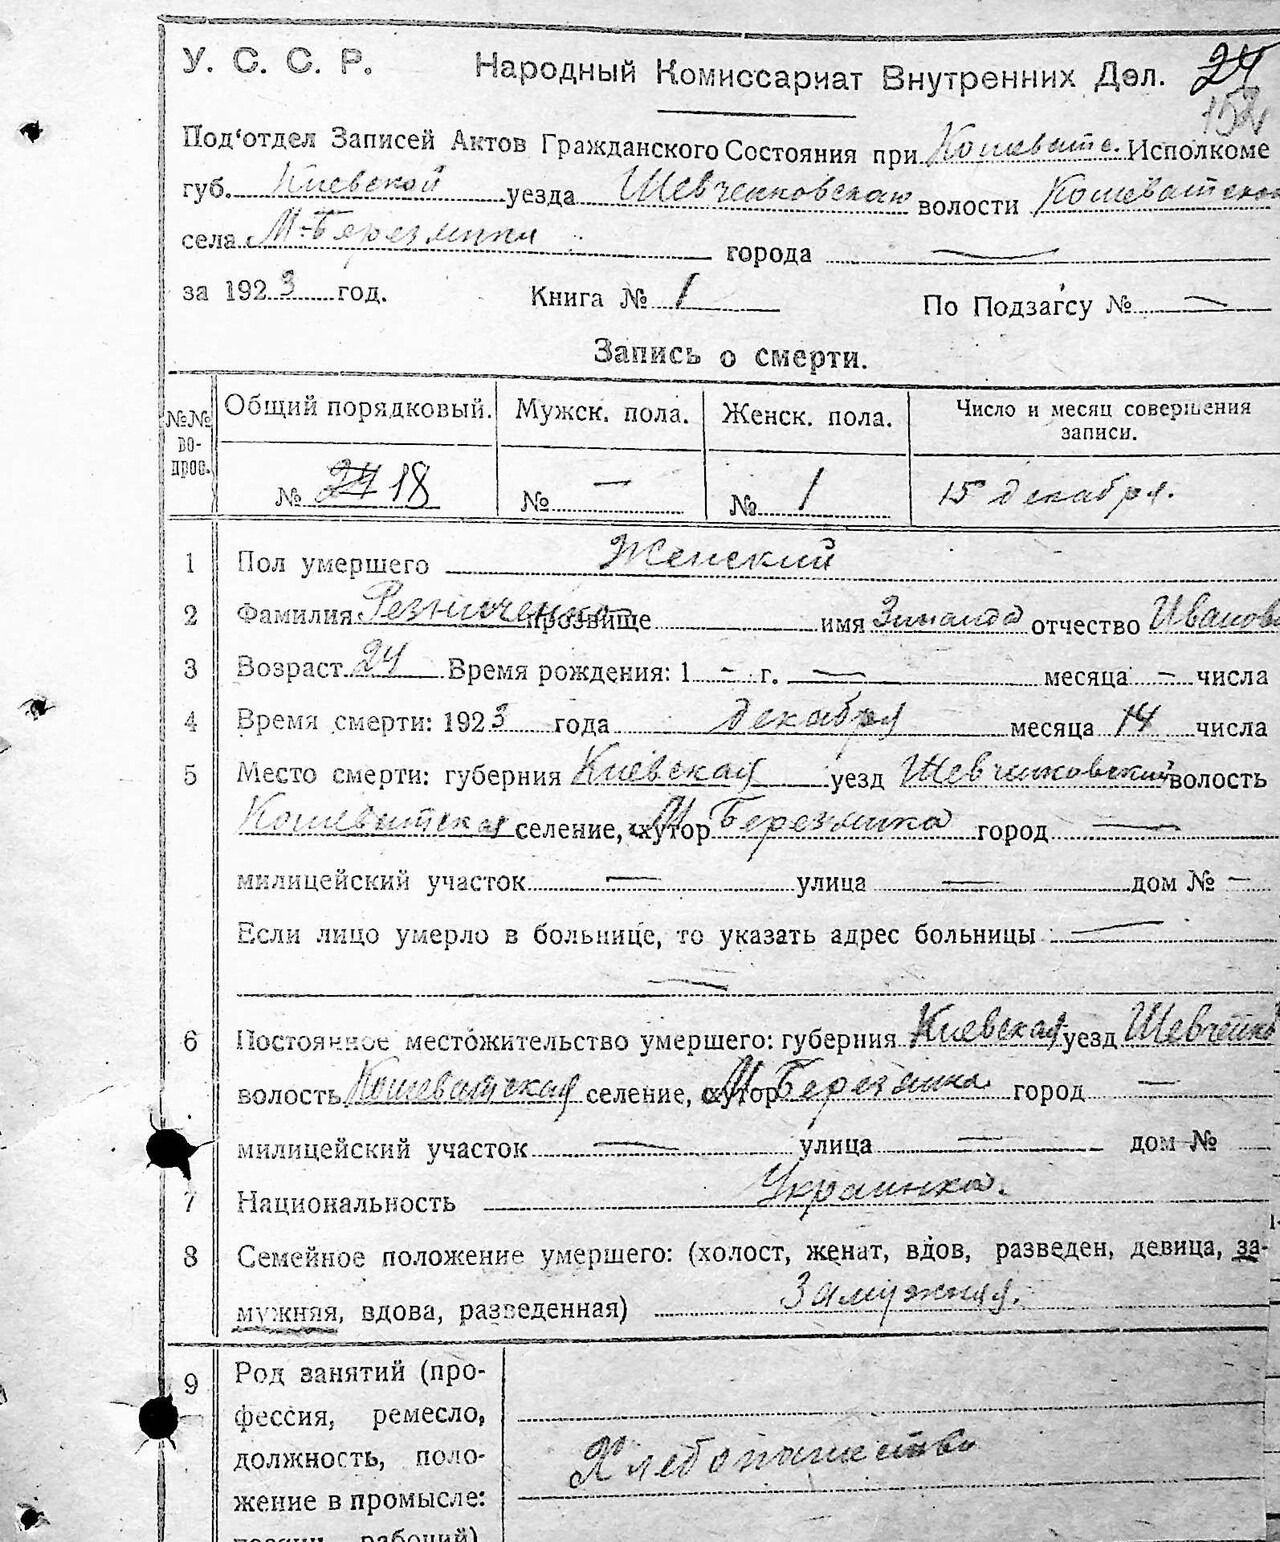 У. С. С. Р. Народный Комиссариат Внутренних Дел. 24
152
Под'отдел Записей Актов Гражданского Состояния при Кошеватс. Исполкоме
губ. Киевской уезда Шевченковская волости Кошеватской
села М-Березянки города —
за 1923 год. Книга № 1 По Подзагсу № —
Запись о смерти.
№№ вопрос. Общий порядковый. Мужск. пола. Женск. пола. Число и месяц совершения записи.
№ 24 18 № — № 1 15 декабря.
1 Пол умершего Женский
2 Фамилия Резниченко прозвище имя Зинаида отчество Иванова
3 Возраст 24 Время рождения: 1 — г. — месяца — числа
4 Время смерти: 1923 года декабря месяца 14 числа
5 Место смерти: губерния Киевская уезд Шевченковский волость
Кошеватская селение, хутор М Березянка город —
милицейский участок — улица — дом № —
Если лицо умерло в больнице, то указать адрес больницы —
—
6 Постоянное местожительство умершего: губерния Киевская уезд Шевченко
волость Кошеватская селение, хутор М Березянка город —
милицейский участок — улица — дом №
7 Национальность Украинка.
8 Семейное положение умершего: (холост, женат, вдов, разведен, девица, за-
мужняя, вдова, разведенная) Замужняя.
9 Род занятий (про-
фессия, ремесло,
должность, поло- Хлебопашество
жение в промысле:
рабочий)